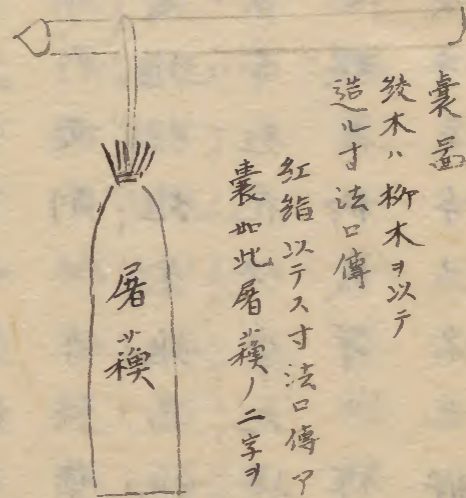 嚢図
綾木ハ柳木ヲ以テ
造ル寸法口傳
紅絹以テス寸法口傳ア
嚢如此屠蘓ノ二字ヲ
屠蘓